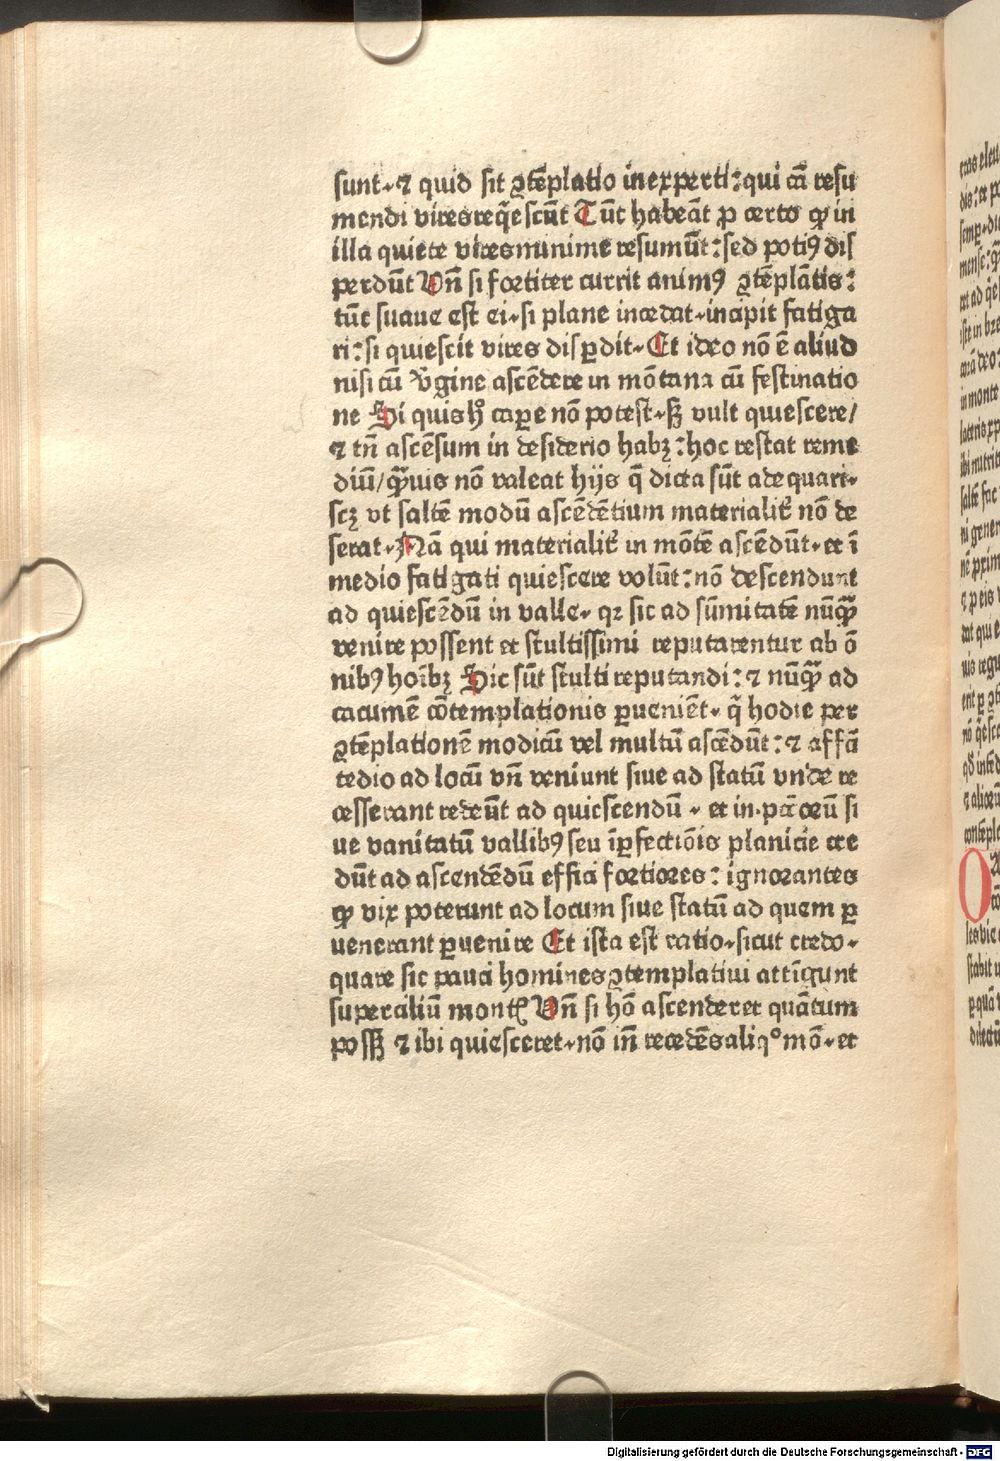 sunt. ⁊ quid sit ꝯtēplatio inexperti: qui cā resu
mendi vires req̄escūt Tūc habeāt ꝓ certo ꝙ in
illa quiete vires minime resumūt: sed poti⁹ dis
perdūt Vn̄ si fortiter currit anim⁹ ꝯtēplātis:
tūc suaue est ei. si plane incedat. incipit fatiga
ri: si quiescit vires disꝑdit. Et ideo nō ē aliud
nisi cū v̓gine ascēdere in mōtana cū festinatio
ne Si quis hͦ caꝑe nō potest. sꝫ vult quiescere/
⁊ tn̄ ascēsum in desiderio habꝫ: hoc restat reme
diū/ ꝙ̄uis nō valeat hijs q̄ dicta sūt adequari.
scꝫ vt saltē modū ascēdētium materialiť nō de
serat. Nā qui materialiť in mōtē ascēdūt. et ī
medio fatigati quiescere volūt: nō descendunt
ad quiescēdū in valle. qꝛ sic ad sūmitatē nūꝙ̄
venire possent et stultissimi reputarentur ab ō
nib⁹ hoībꝫ Sic sūt stulti reputandi: ⁊ nūꝙ̄ ad
cacumē cōtemplationis ꝑueniēt. q̄ hodie per
ꝯtēplationē modicū vel multū ascēdūt: ⁊ affcī
tedio ad locū vn̄ veniunt siue ad statū vnde re
cesserant redeūt ad quiescendū . et in pcc̄orū si
ue vanitatū vallib⁹ seu īꝑfectiōis planicie cre
dūt ad ascendēdū effici fortiores: ignorantes
ꝙ vix poterunt ad locum siue statū ad quem ꝑ
uenerant ꝑuenire Et ista est ratio. sicut credo.
quare sic pauci homines ꝯtemplatiui attīgunt
superciliū montꝭ Vn̄ si hō ascenderet quātum
possꝫ ⁊ ibi quiesceret. nō in̄ recedēs aliqͦ mō. et
Digitalisierung gefördert durch die Deutsche Forschungsgemeinschaft - DFG